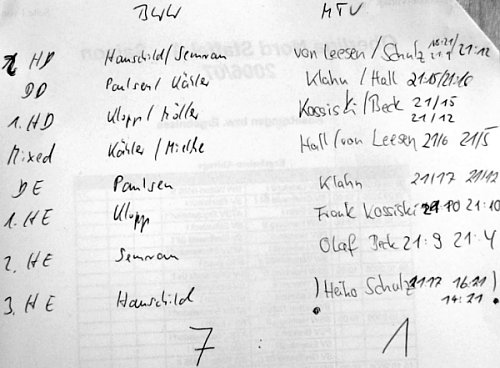 BWW MTV
2. HD Hanschild/Semran von Leesen/Schulz 18:21/21:12 21:9
DD Paulsen/Kähler Klahn/Hall 21:15/21:16
1. HD Klopp/Möller Kossiski/Beck 21/15 21/12
Mixed Kähler/Hall/von Leesen 21/6 21/5
DE Paulsen Klahn 21/17 21/12
1. HE Klopp Frank Kossiski 21:10 21:10
2. HE Semran Olaf Beck 21:9 21:4
3. HE Hanschild )Heiko Schulz 21:17 16:21 14:21)
7 : 1